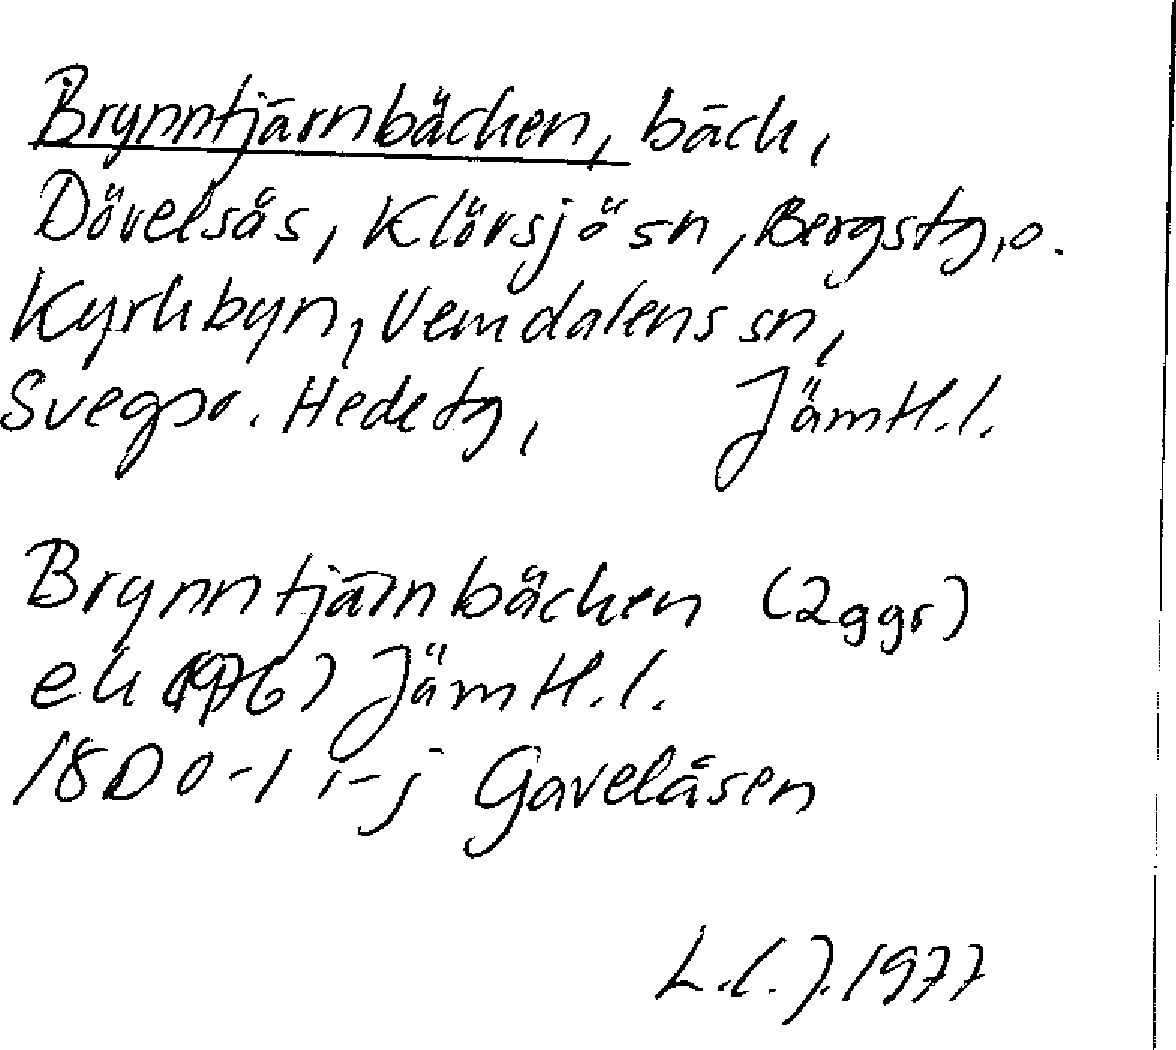 Brynntjärnbäcken, bäck,
Dövelsås, Klövsjö sn, Bergs tg, o.
Kyrkbyn, Vemdalens sn,
Svegs o. Hede tg, Jämtl.l.
Brynntjärnbäcken (2ggr)
ek (1976) Jämtl.l.
18D 0-1 i-j Gavelåsen
L.l.J. 1977